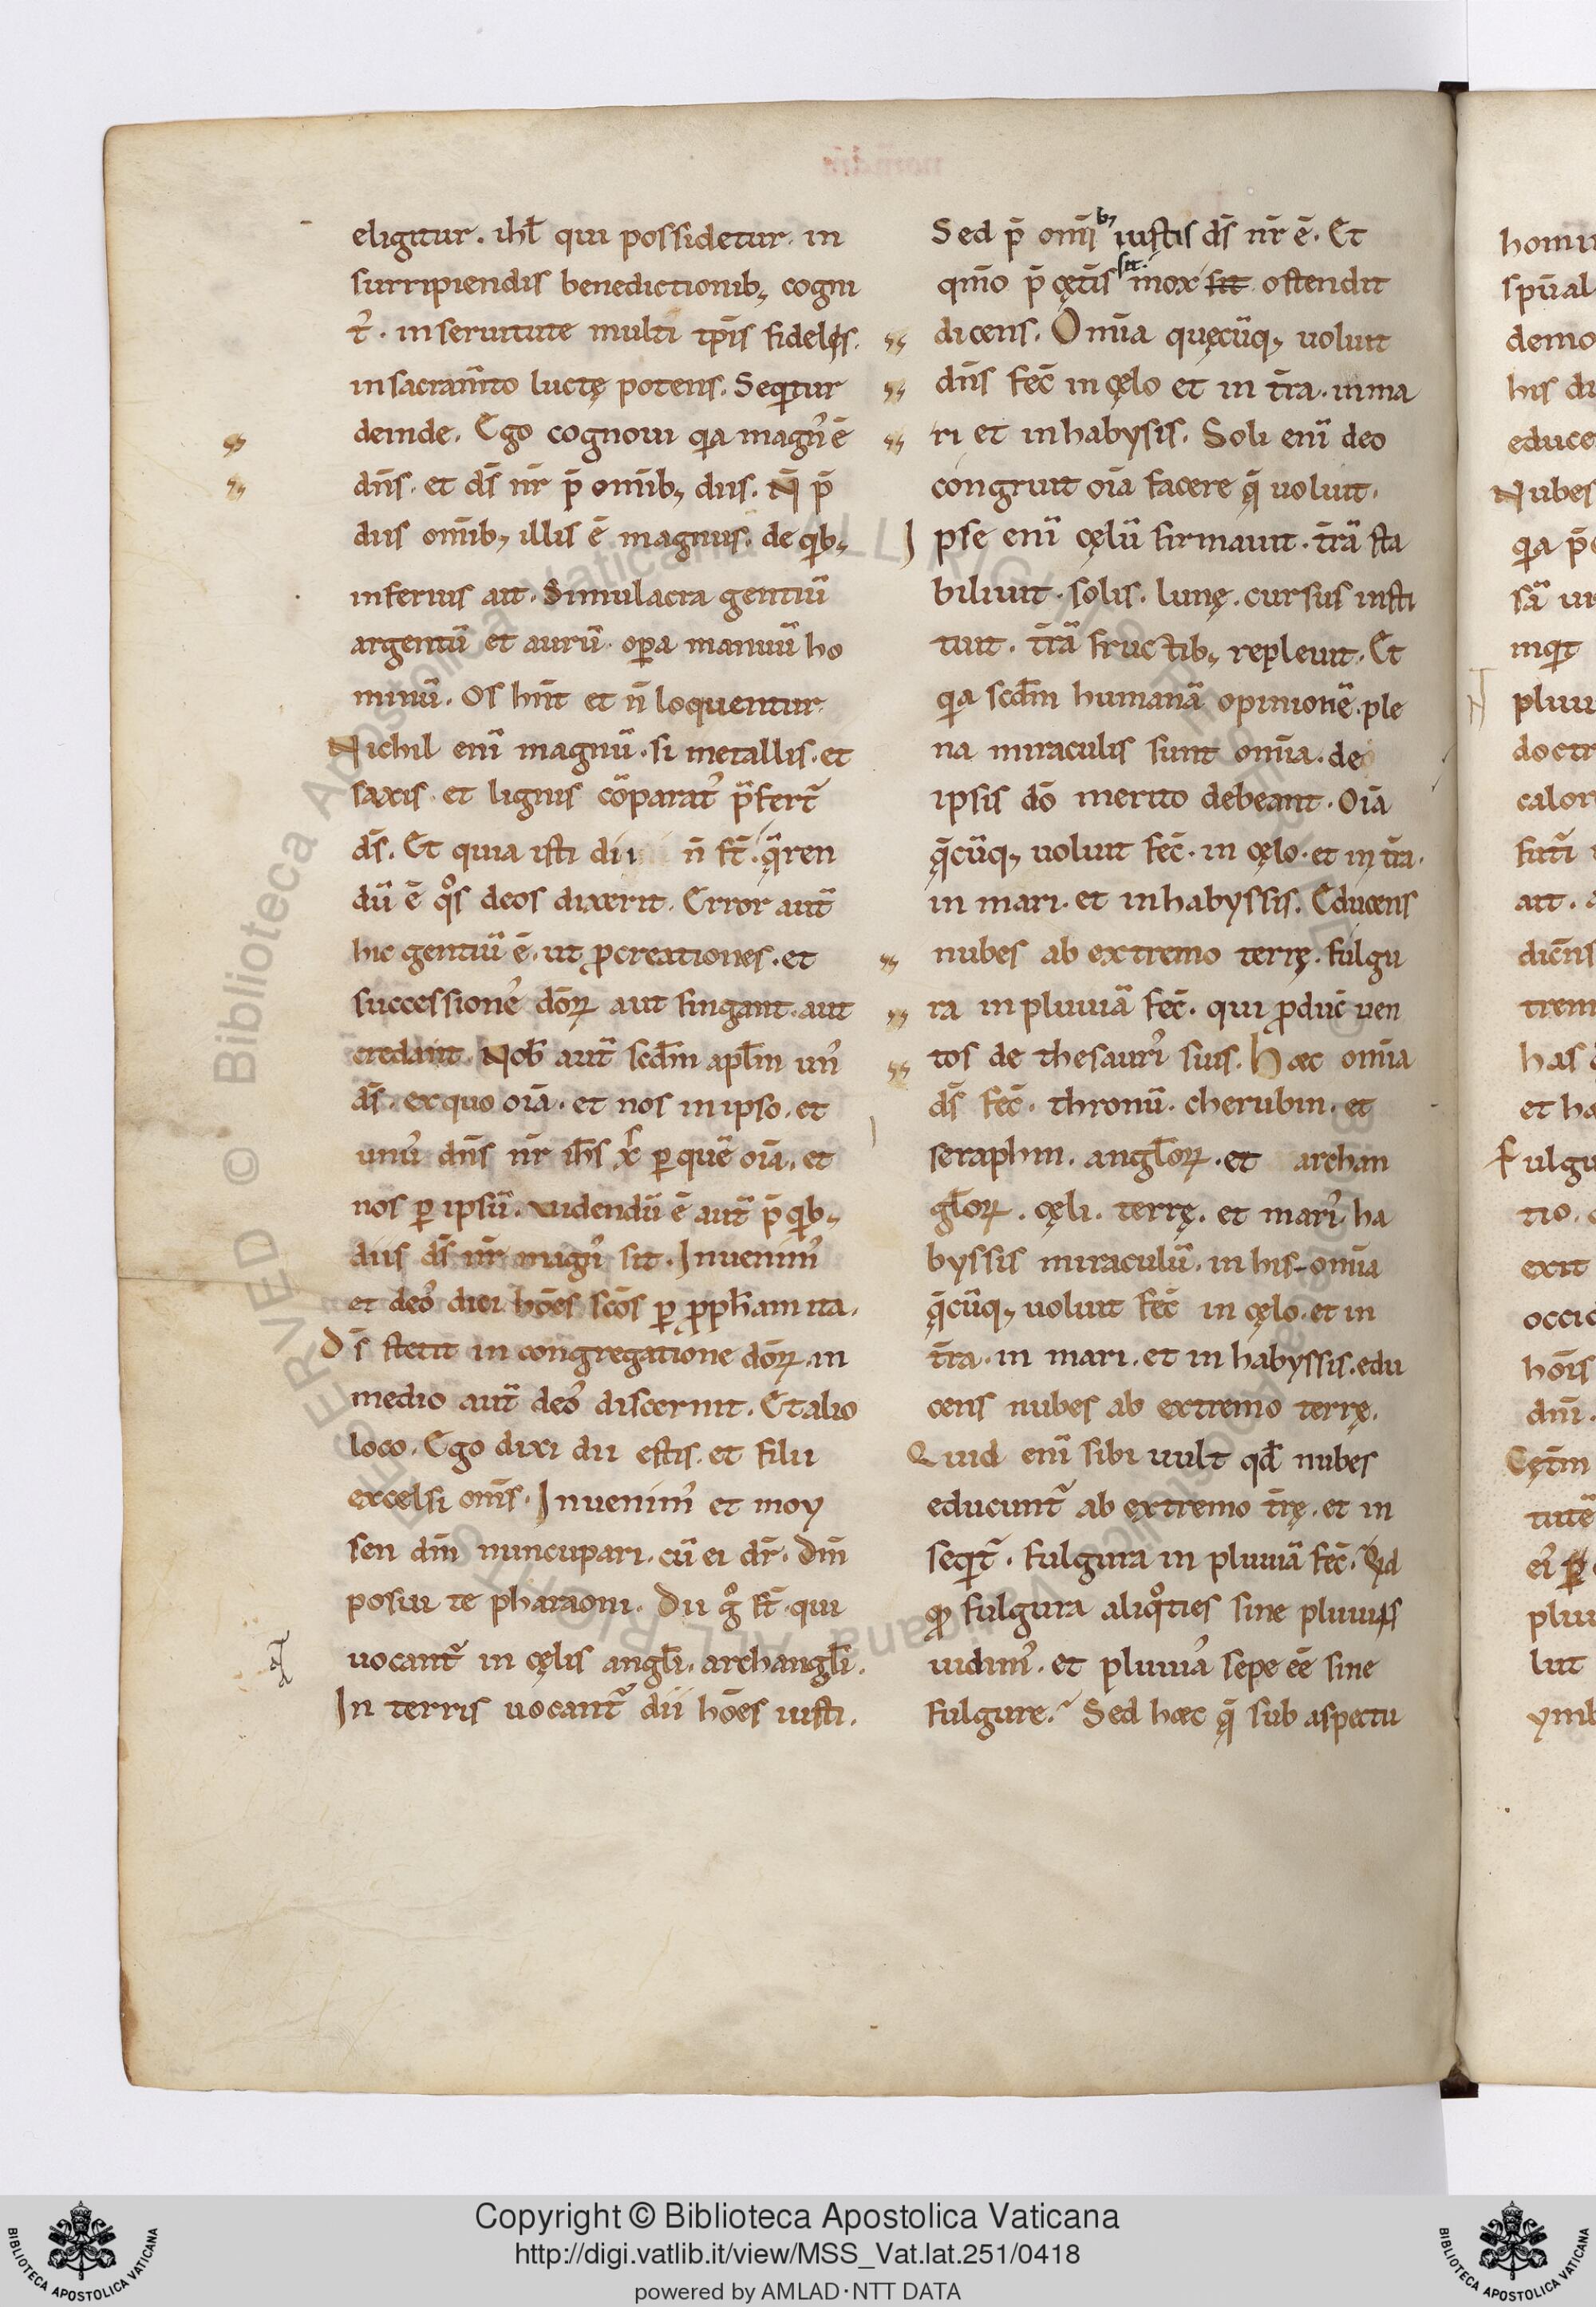 eligitur. ihl̄ qui possidetur. in
surripiendis benedictionib; cogni
t᷒. in seruitute multi tp̄is fideles.
in sacram̄to luctę potens. Seq̄tur
deinde. Ego cognoui qia magn᷒ ē
dn̄s. et ds̄ nr̄ p̄ omīb; diis. N̄ p̄
diis omīb; illis ē magnus. de qib;
inferius ait. Simulacra gentiū
argentū et aurū. op̱a manuū ho
minū. Os hn̄t et n̄ loquentur.
Nichil enī magnū. si metallis. et
saxis. et lignis cōparat᷒ p̄fert̄
ds̄. Et quia isti dii n̄ st̄. q̄ren
dū ē qͦs deos dixerit. Error aut̄
hic gentiū ē. ut ꝓcreationes. et
successione᷒ doꝝ aut fingant. aut
credant. Nob̄ aut̄ scd̄m apl̄m un᷒
ds̄. ex quo oīa. et nos in ipso. et
unu᷒ dn̄s nr̄ ih̄s xͬ ꝑ quē oīa. et
nos ꝑ ipsū. uidendū ē aut̄ p̄ qib;
diis ds̄ nr̄ magn᷒ sit. Inuenim᷒
et deo᷒ dici hōes scōs ꝑ ꝓph̄am ita.
Ds̄ stetit in congregatione dōꝝ. in
medio aut̄ deo᷒ discernit. Et alio
loco. Ego dixi dii estis. et filii
excelsi om̄s. Inuenim᷒ et moy
sen dm̄ nuncupari. cū ei dr̄. Dm̄
posui te pharaoni. Dii gͦ st̄. qui
uocant᷒ in cęlis angl̄i. archangl̄i.
In terris uocant᷒ dii hōes iusti.
Sed p̄ omīb; iustis ds̄ nr̄ ē. Et
qm̄o p̄ cęt̄is sit. mox sit ostendit
dicens. Om̄ia quęcūq; uoluit
dn̄s fec̄ in cęlo et in t̄ra. in ma
ri et in habysis. Soli enī deo
congruit oīa facere q̄ uoluit.
Ipse enī cęlū firmauit. t̄rā sta
biliuit. solis. lunę. cursus insti
tuit. t̄rā fructib; repleuit. Et
qia scd̄m humanā opinionē. ple
na miraculis sunt om̄ia. de
ipsis dō merito debeant. Oīa
q̄cūq; uoluit fec̄. in cęlo. et in t̄ra.
in mari. et in habyssis. Educens
nubes ab extremo terrę. fulgu
ra in pluuiā fec̄. qui ꝓduc̄ uen
tos de thesauri᷒ suis. Hæc om̄ia
ds̄ fec̄. thronū. cherubin. et
seraphin. angl̄oꝝ. et archan
gl̄oꝝ. cęli. terrę. et mari᷒ ha
byssis miraculū. in his om̄ia
q̄cūq; uoluit fec̄ in cęlo. et in
t̄ra. in mari. et in habyssis. edu
cens nubes ab extremo terrę.
Quid enī sibi uult qd̄ nubes
educunt᷒ ab extremo t̄rę. et in
seqit᷒. fulgura in pluuiā fec̄. Qid
qꝫ fulgura aliqͦties sine pluuiis
uidim᷒. et pluuia᷒ sepe ēē sine
fulgure. Sed hæc q̄ sub aspectu
Copyright © Biblioteca Apostolica Vaticana
http://digi.vatlib.it/view/MSS_Vat.lat.251/0418
powered by AMLAD·NTT DATA